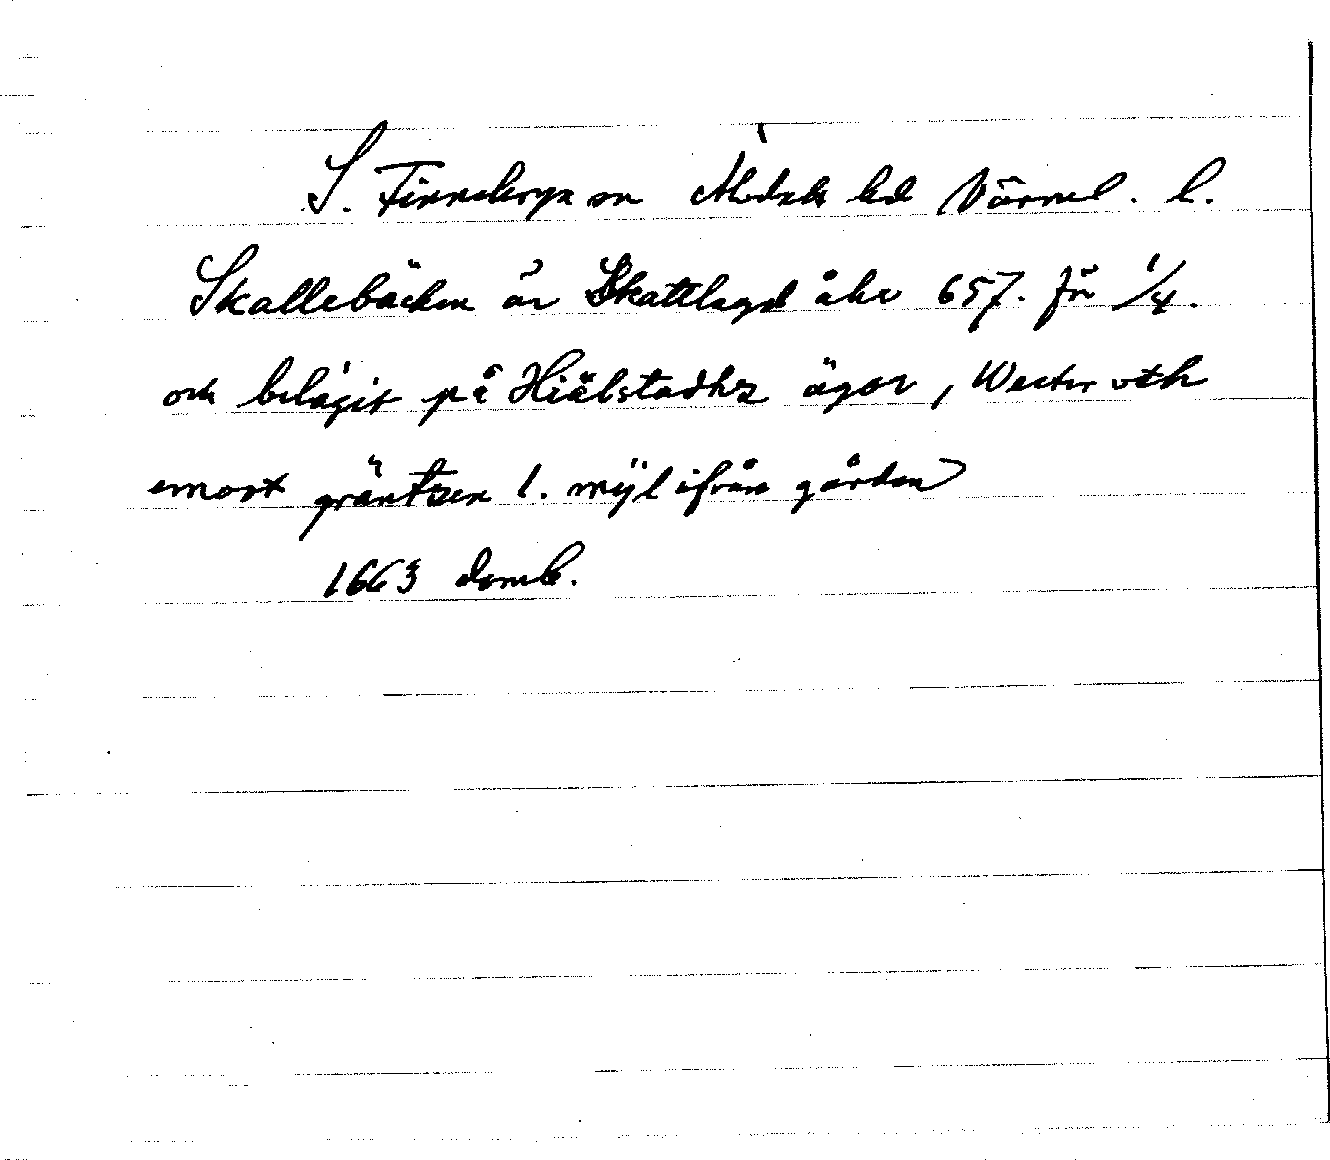 S. Finnskoga sn Älvdals hd Värml. l.
Skallebäcken är Skattlagd åhr 657. för 1/4.
och belägit på Hiälstadhz ägor, Wester uth
emoot gräntzen 1. mÿl ifrån gården
1663 domb.